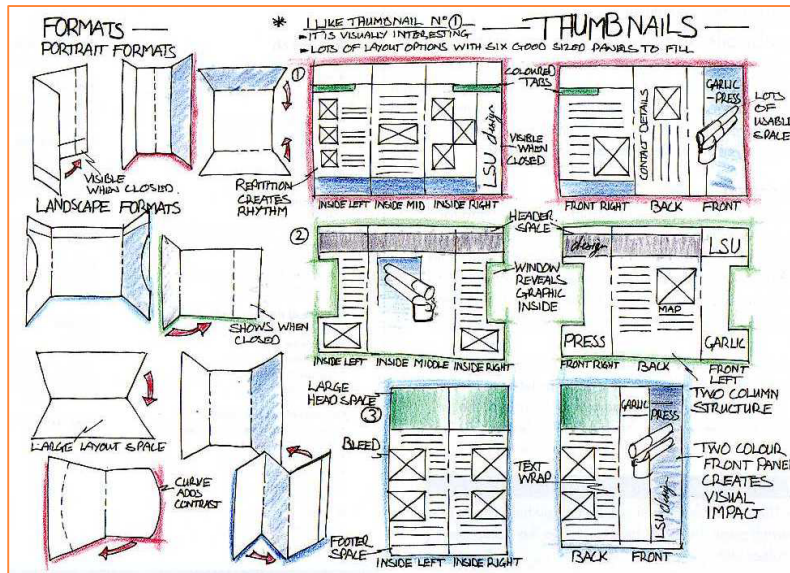 FORMATS
PORTRAIT FORMATS
VISIBLE
WHEN CLOSED.
LANDSCAPE FORMATS
SHOWS WHEN
CLOSED
LARGE LAYOUT SPACE
CURVE
ADDS
CONTRAST
* I LIKE THUMBNAIL Nº ①
THUMBNAILS
- IT IS VISUALLY INTERESTING
- LOTS OF LAYOUT OPTIONS WITH SIX GOOD SIZED PANELS TO FILL
①
COLOURED
TABS
LSU design
VISIBLE
WHEN
CLOSED
REPTITION
CREATES
RHYTHM
INSIDE LEFT
INSIDE MID
INSIDE RIGHT
CONTACT DETAILS
GARLIC
-PRESS
LOTS
OF
USABLE
SPACE
FRONT RIGHT
BACK
FRONT
②
HEADER
SPACE
WINDOW
REVEALS
GRAPHIC
INSIDE
INSIDE LEFT
INSIDE MIDDLE
INSIDE RIGHT
design
LSU
MAP
PRESS
GARLIC
FRONT RIGHT
BACK
FRONT
LEFT
TWO COLUMN
STRUCTURE
LARGE
HEAD SPACE
③
BLEED
TEXT
WRAP
FOOTER
SPACE
INSIDE LEFT
INSIDE RIGHT
GARLIC
-PRESS
LSU design
TWO COLOUR
FRONT PANEL
CREATES
VISUAL
IMPACT
BACK
FRONT